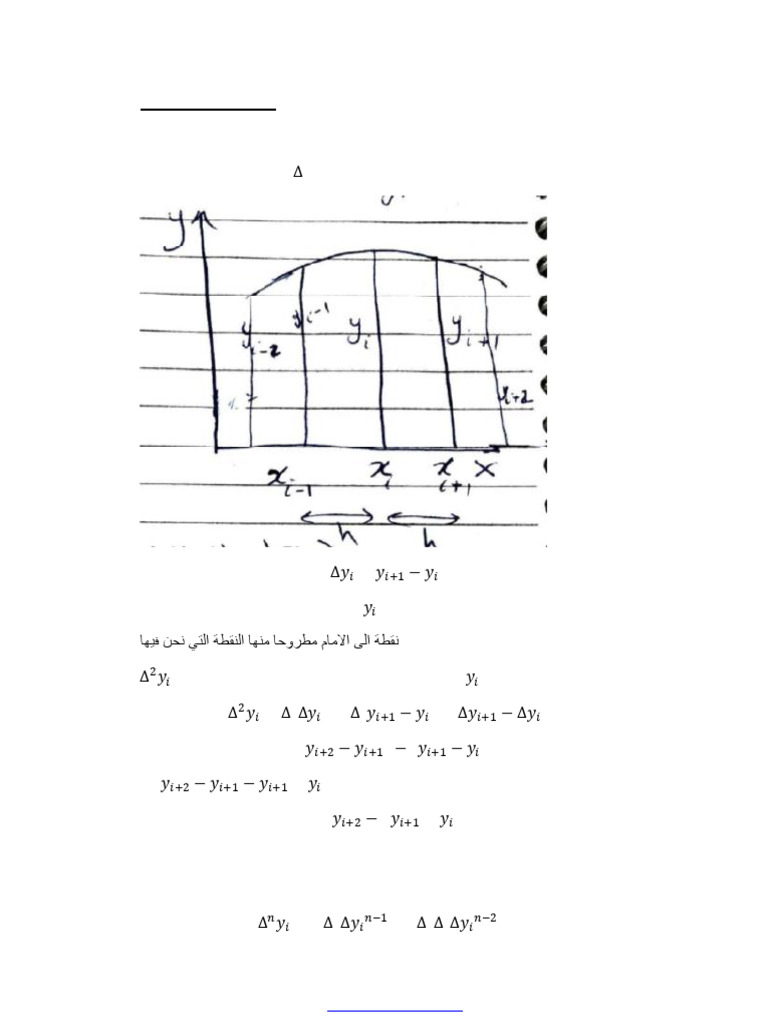 Δ
y
y_{i-2}
y_{i-1}
y_i
y_{i+1}
y_{i+2}
x_{i-1} x_i x_{i+1} x
h h
Δy_i y_{i+1} − y_i
y_i
نقطة الى الامام مطروحا منها النقطة التي نحن فيها
Δ²y_i y_i
Δ²y_i Δ Δy_i Δ y_{i+1} − y_i Δy_{i+1} − Δy_i
y_{i+2} − y_{i+1} − y_{i+1} − y_i
y_{i+2} − y_{i+1} − y_{i+1} y_i
y_{i+2} − y_{i+1} y_i
Δⁿy_i Δ Δy_i^{n−1} Δ Δ Δy_i^{n−2}